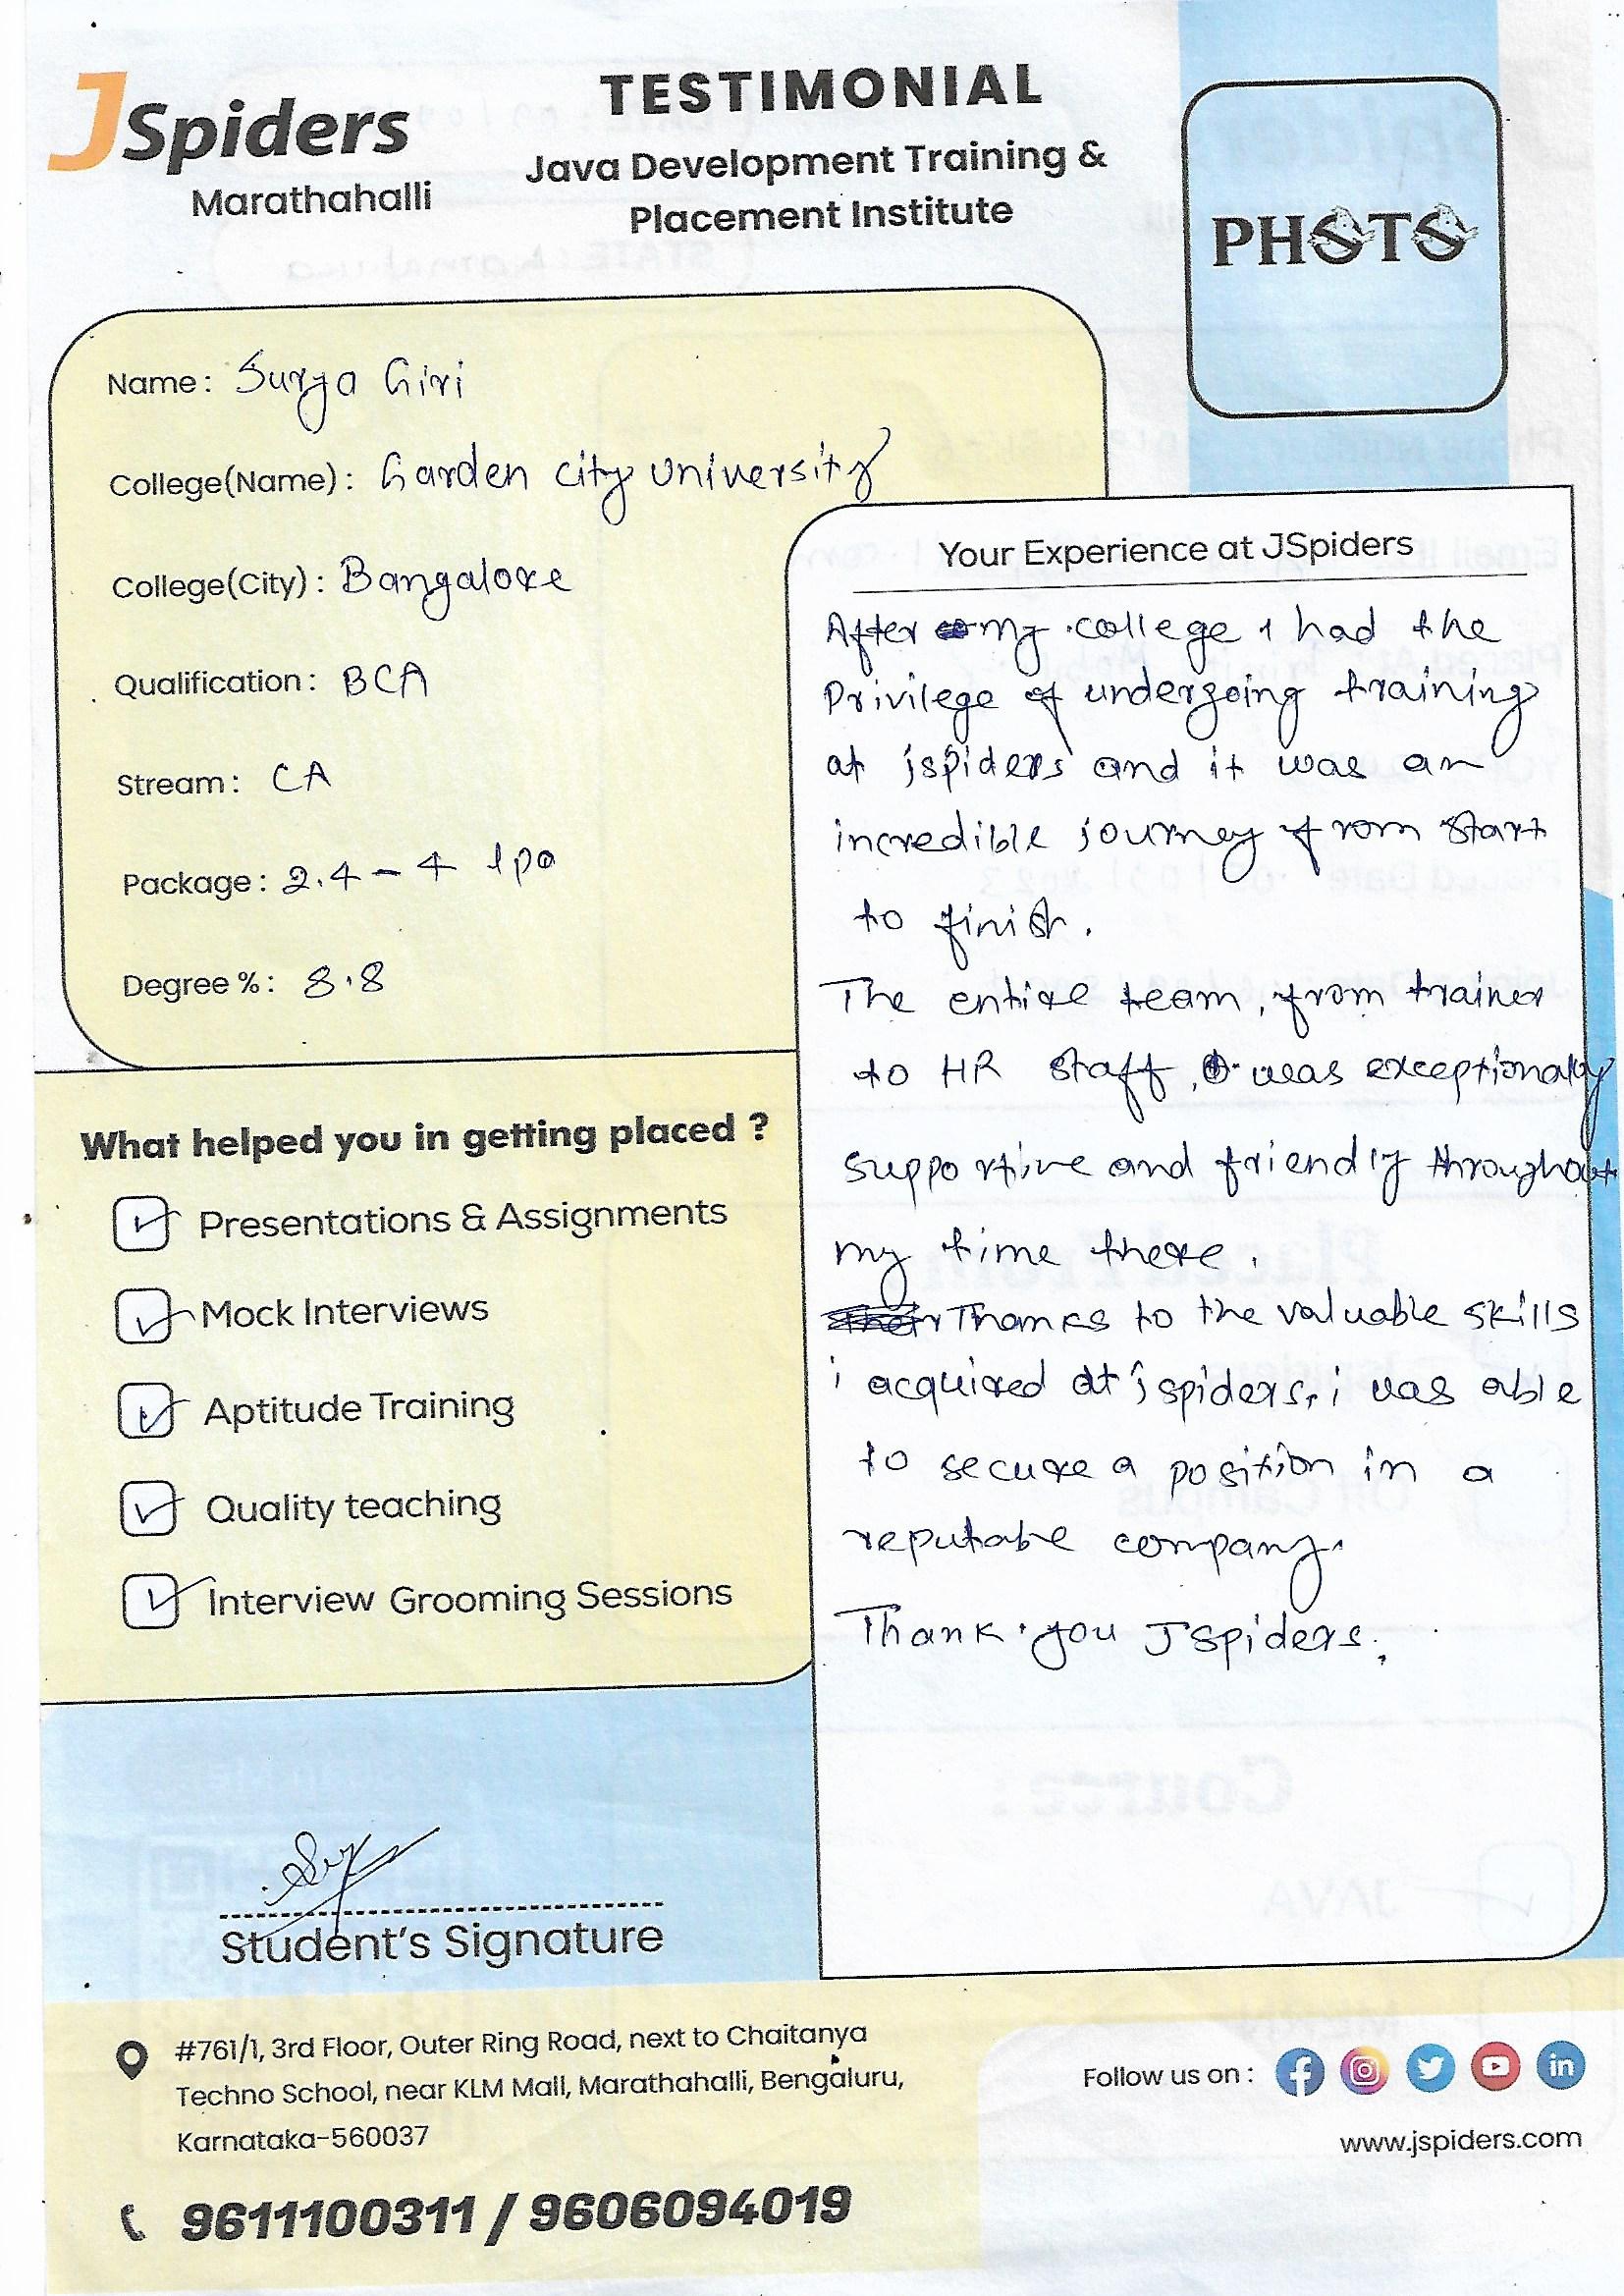 JSpiders
Marathahalli
TESTIMONIAL
Java Development Training &
Placement Institute
PHOTO
Name: Surya Giri
College(Name): Garden city University
College(City): Bangalore
Qualification: BCA
Stream: CA
Package: 2.4 - 4 lpa
Degree %: 8.8
What helped you in getting placed ?
Presentations & Assignments
Mock Interviews
Aptitude Training
Quality teaching
Interview Grooming Sessions
Your Experience at JSpiders
After my college I had the
Privilege of undergoing training
at jspiders and it was an
incredible journey from start
to finish.
The entire team, from trainer
to HR staff, was exceptionally
supportive and friendly throughout
my time there.
Thanks to the valuable skills
i acquired at jspiders, i was able
to secure a position in a
reputable company.
Thank you JSpiders.
Student's Signature
#761/1, 3rd Floor, Outer Ring Road, next to Chaitanya
Techno School, near KLM Mall, Marathahalli, Bengaluru,
Karnataka-560037
9611100311 / 9606094019
Follow us on :
www.jspiders.com